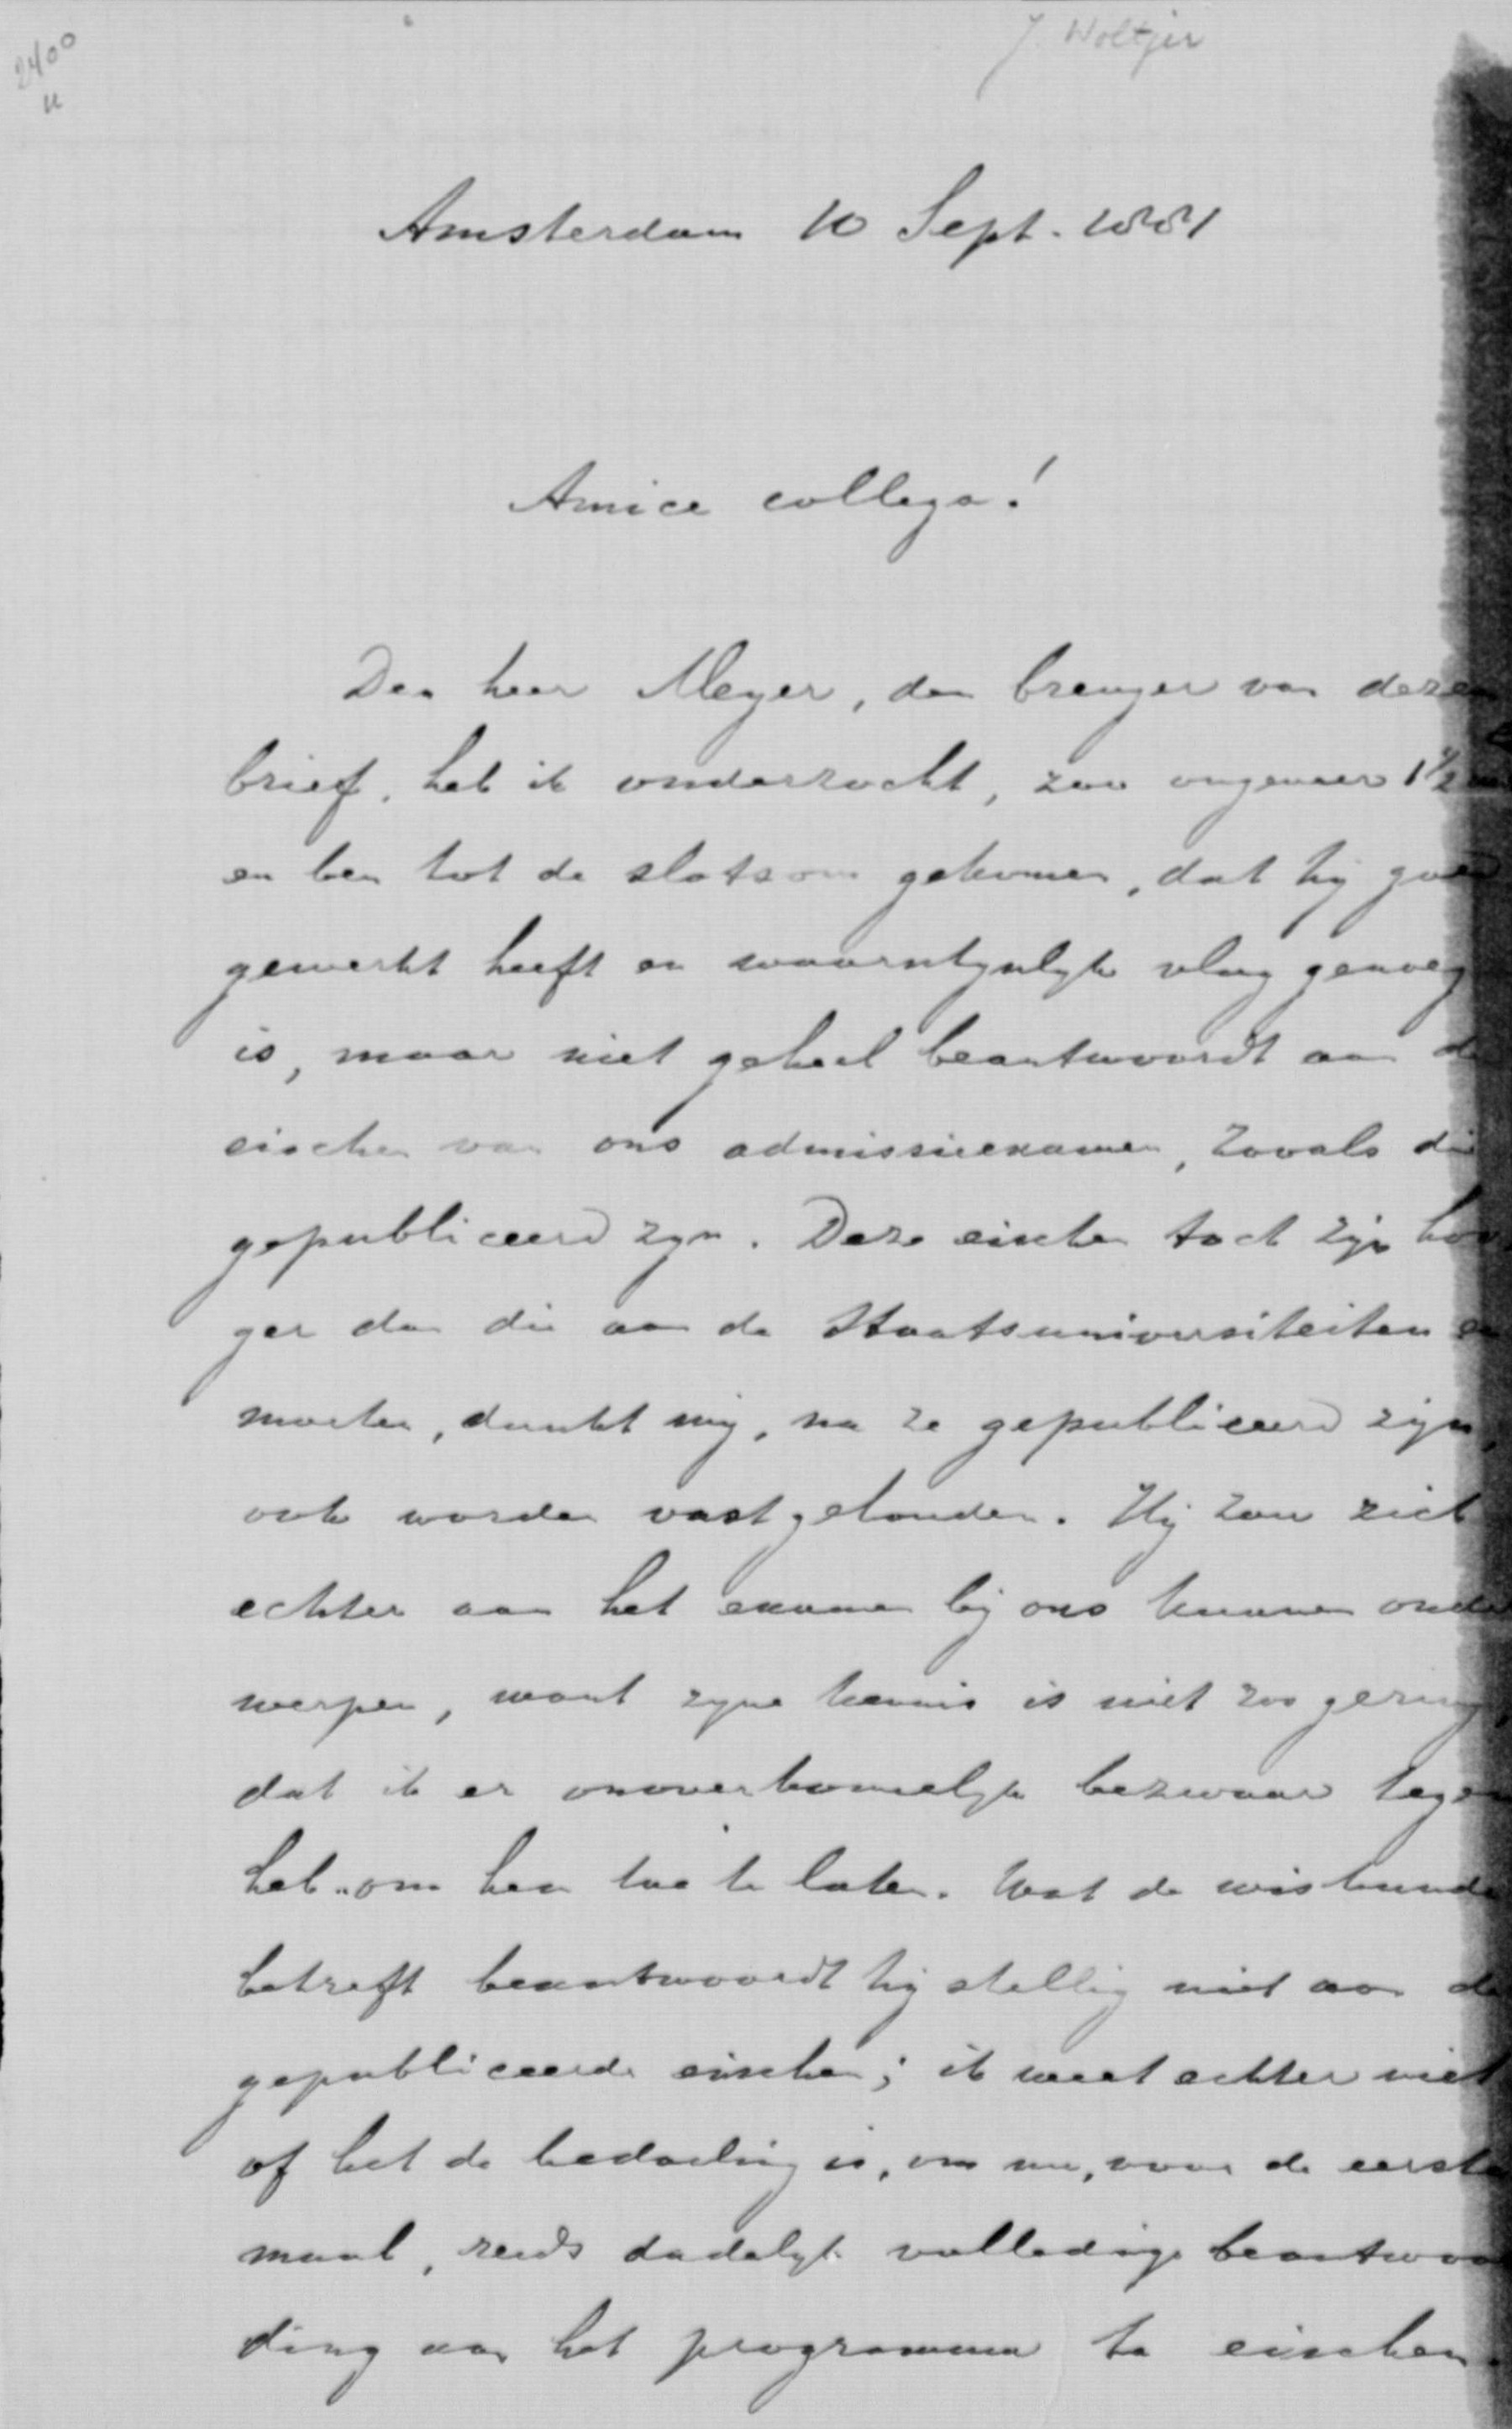 J. Woltjer
2400
Amsterdam 10 Sept. 1881
Amice collega!
Den heer Meyer, den brenger van dezen
brief, heb ik onderzocht, zoo ongeveer 1 1/2
en ben tot de slotsom gekomen, dat hij goed
gewerkt heeft en waarschynlyk vlug genoeg
is, maar niet geheel beantwoordt aan de
eischen van ons admissieexamen, zooals die
gepubliceerd zyn. Deze eischen toch zijn hoo
ger dan die aan de Staatsuniversiteiten en
moeten, dunkt mij, nu ze gepubliceerd zijn,
ook worden vastgehouden. Hij zou zich
echter aan het examen bij ons kunnen onder
werpen, want zyne kennis is niet zoo gering,
dat ik er onoverkomelyk bezwaar tegen
heb om hem toe te laten. Wat de wiskunde
betreft beantwoordt hij stellig niet aan de
gepubliceerde eischen; ik weet echter niet
of het de bedoeling is, om nu, voor de eerste
maal, reeds dadelyk volledige beantwoor
ding aan het programma te eischen.